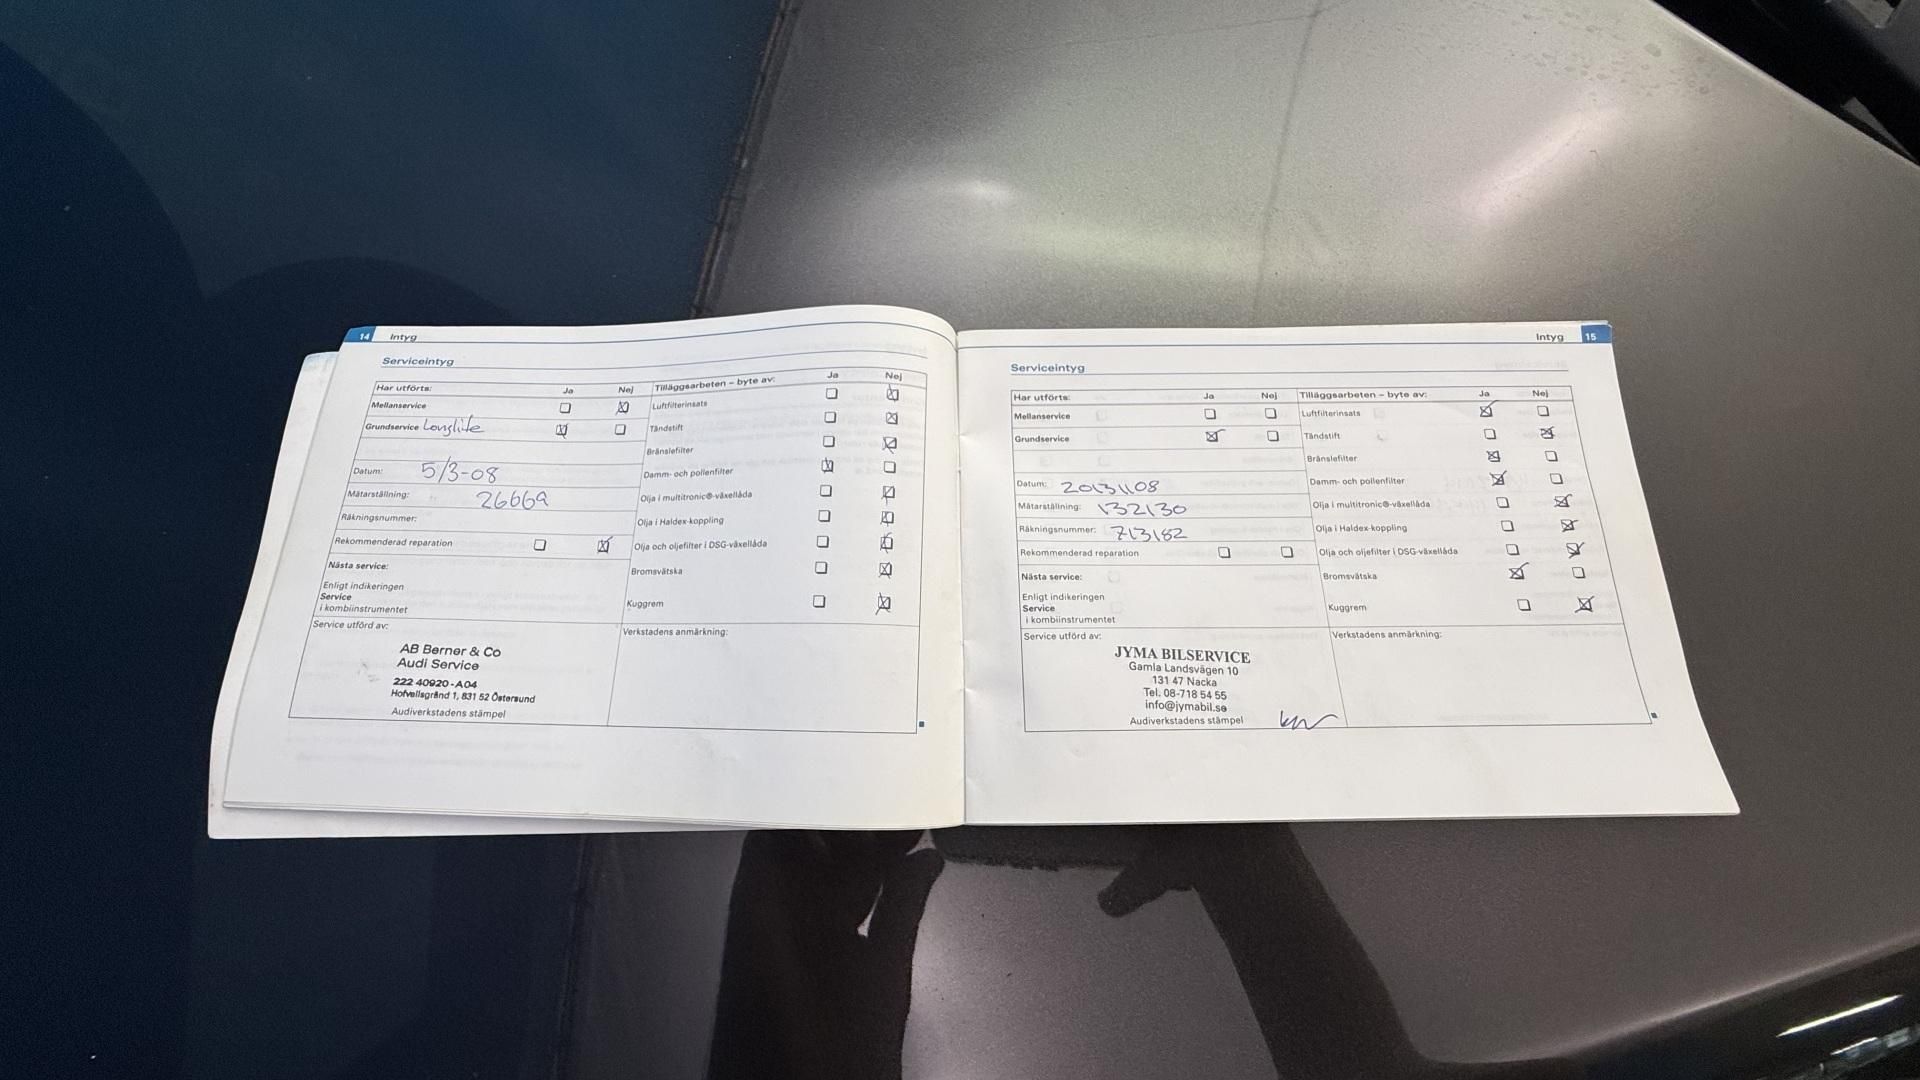 14 Intyg
Serviceintyg
Har utförts: Ja Nej
Mellanservice
Grundservice Longlife
Datum: 5/3-08
Mätarställning: 26669
Räkningsnummer:
Rekommenderad reparation
Nästa service:
Enligt indikeringen
Service
i kombiinstrumentet
Service utförd av:
AB Berner & Co
Audi Service
222 40920-A04
Hofvallsgränd 1, 831 52 Östersund
Audiverkstadens stämpel
Tilläggsarbeten – byte av: Ja Nej
Luftfilterinsats
Tändstift
Bränslefilter
Damm- och pollenfilter
Olja i multitronic®-växellåda
Olja i Haldex-koppling
Olja och oljefilter i DSG-växellåda
Bromsvätska
Kuggrem
Verkstadens anmärkning:
Intyg 15
Serviceintyg
Har utförts: Ja Nej
Mellanservice
Grundservice
Datum: 20131108
Mätarställning: 132130
Räkningsnummer: 713182
Rekommenderad reparation
Nästa service:
Enligt indikeringen
Service
i kombiinstrumentet
Service utförd av:
JYMA BILSERVICE
Gamla Landsvägen 10
131 47 Nacka
Tel. 08-718 54 55
info@jymabil.se
Audiverkstadens stämpel
Tilläggsarbeten – byte av: Ja Nej
Luftfilterinsats
Tändstift
Bränslefilter
Damm- och pollenfilter
Olja i multitronic®-växellåda
Olja i Haldex-koppling
Olja och oljefilter i DSG-växellåda
Bromsvätska
Kuggrem
Verkstadens anmärkning: